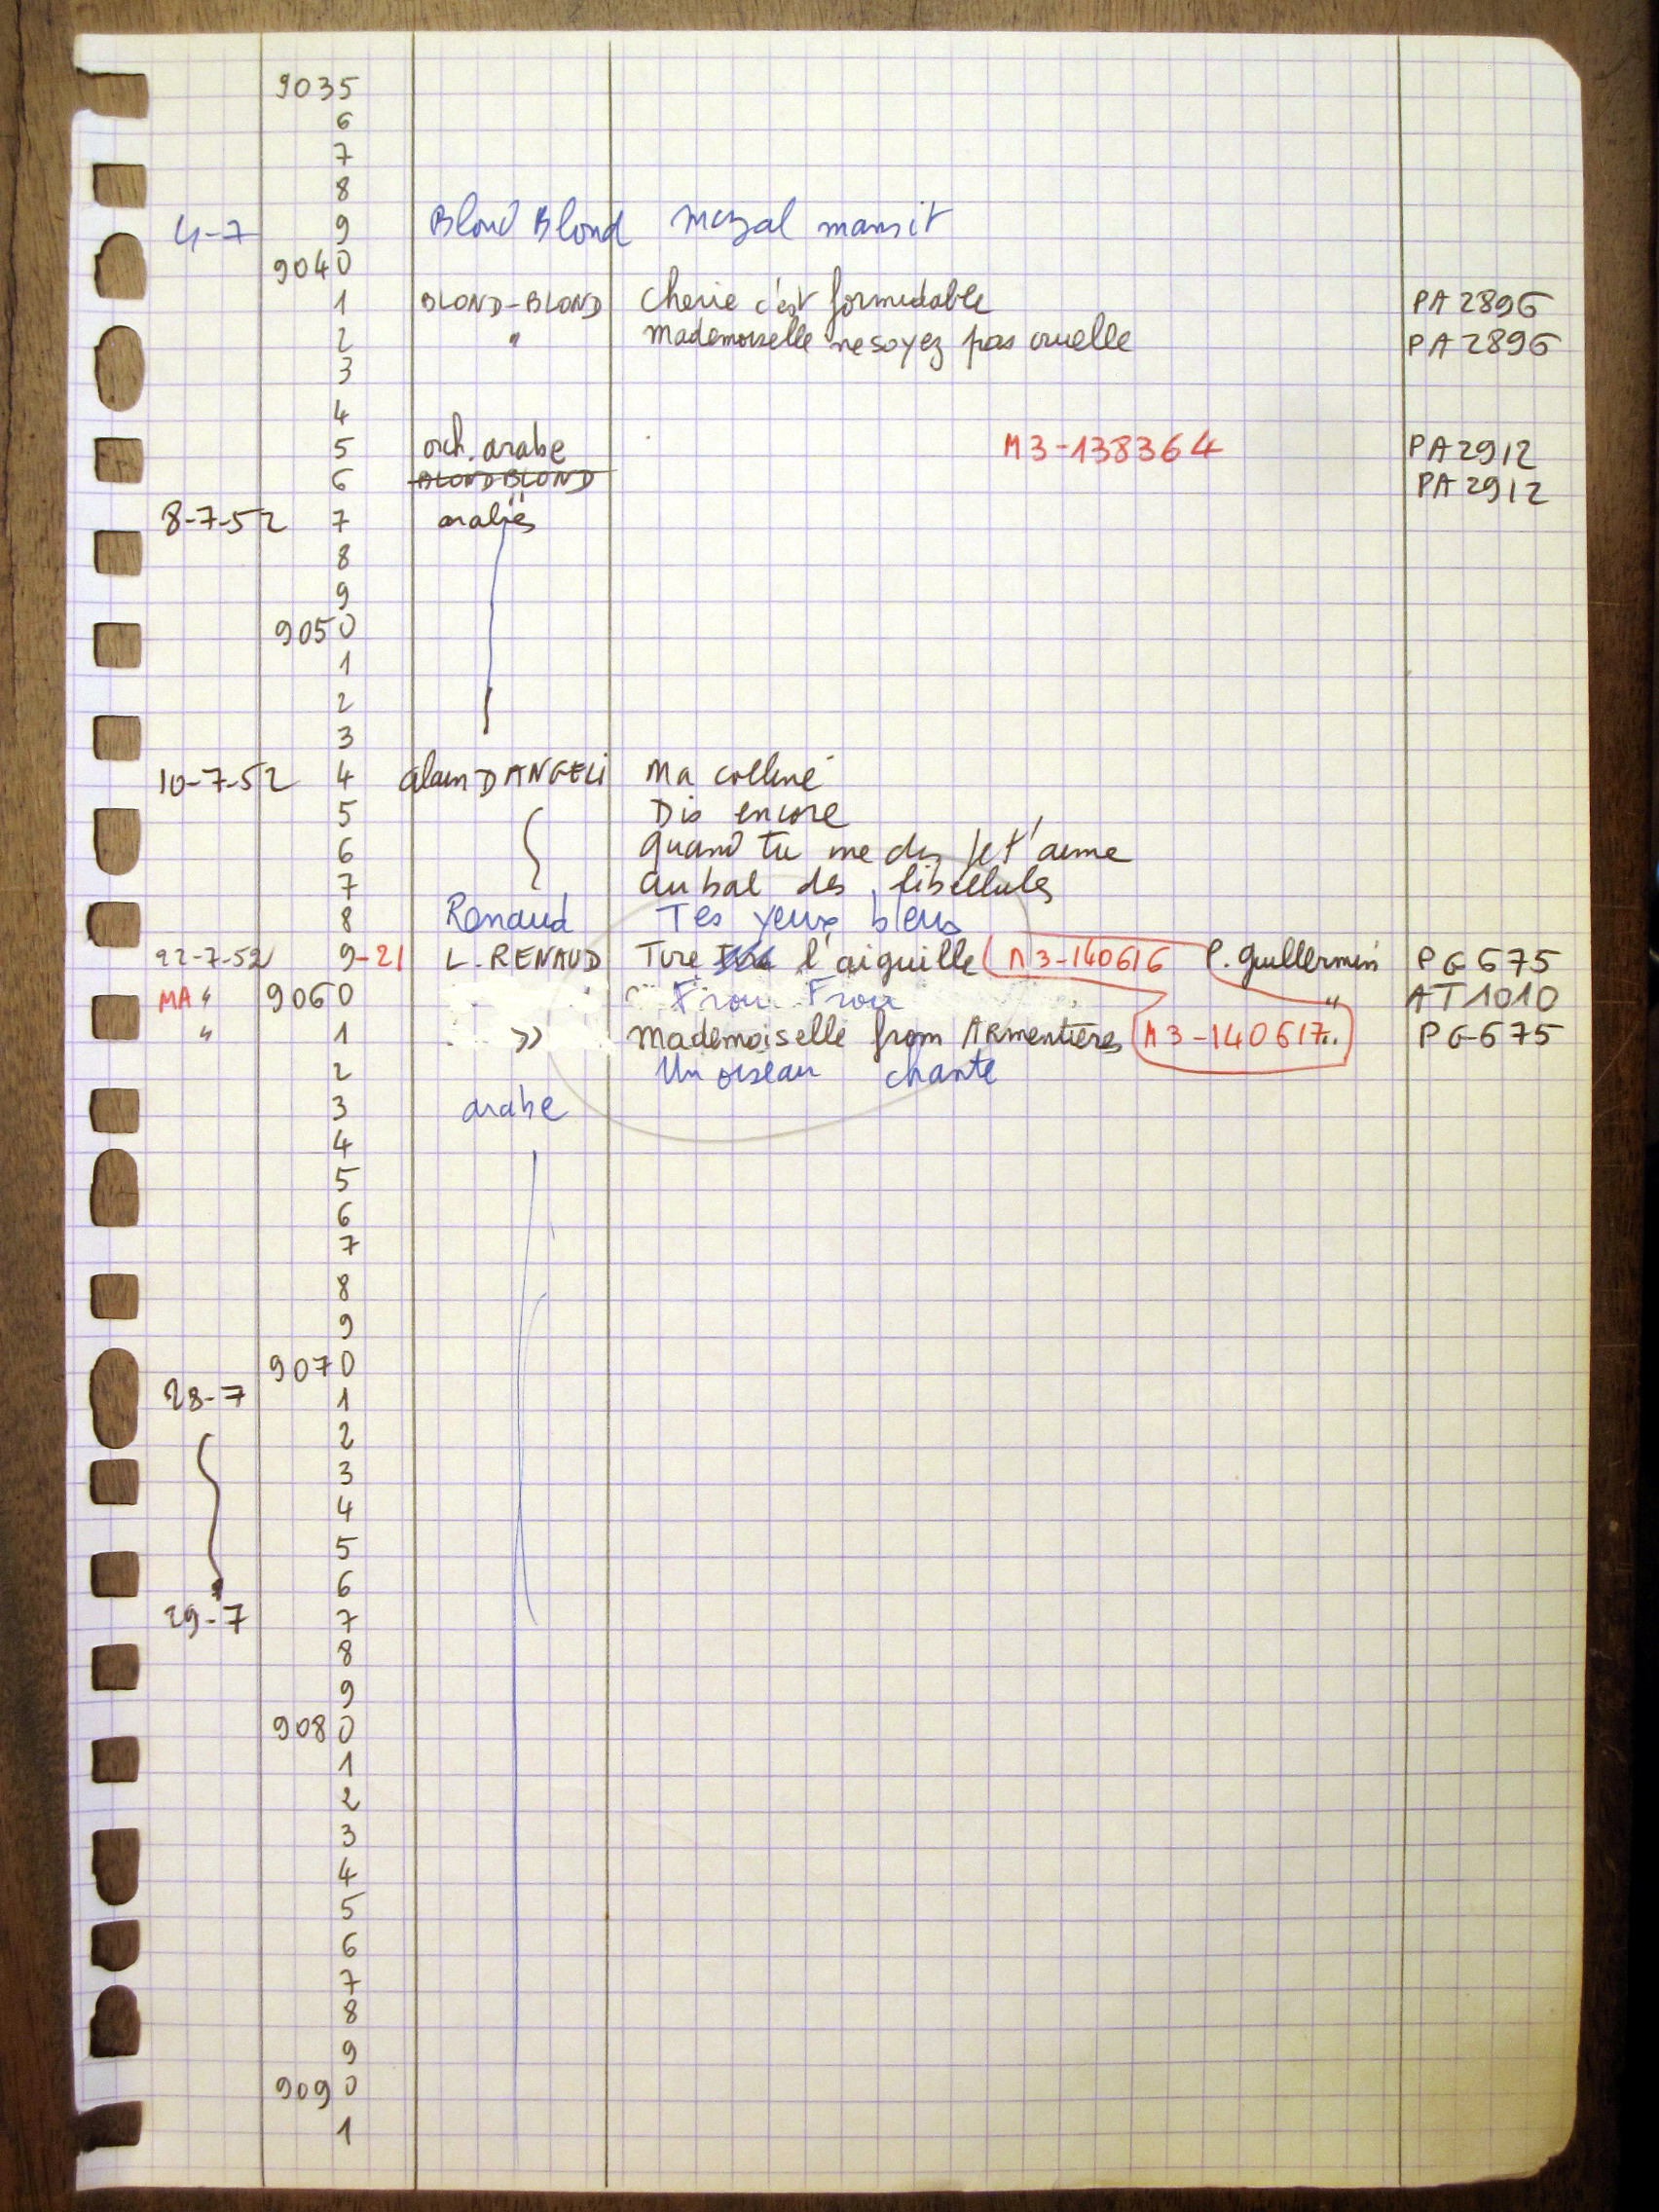 9035
6
7
8
4-7 9 Blond Blond mazal mansit
9040
1 BLOND-BLOND Cherie c'est formidable PA 2896
2 " Mademoiselle ne soyez pas cruelle PA 2896
3
4
5 orch. arabe M3-138364 PA 2912
6 BLOND BLOND PA 2912
8-7-52 7 arabes
8
9
9050
1
2
3
10-7-52 4 Alain DANGELI Ma colline
5 Dis encore
6 Quand tu me dis je t'aime
7 Au bal des libellules
8 Renaud Tes yeux bleus
22-7-52 9-21 L. RENAUD Tire l'aiguille M3-140616 P. Guillermin PG 675
MA " 9060 Frou Frou " AT 1010
" 1 » Mademoiselle from ARmentières M3-140617.. PG 675
2 Un oiseau chante
3 arabe
4
5
6
7
8
9
9070
28-7 1
2
3
4
5
6
29-7 7
8
9
9080
1
2
3
4
5
6
7
8
9
9090
1